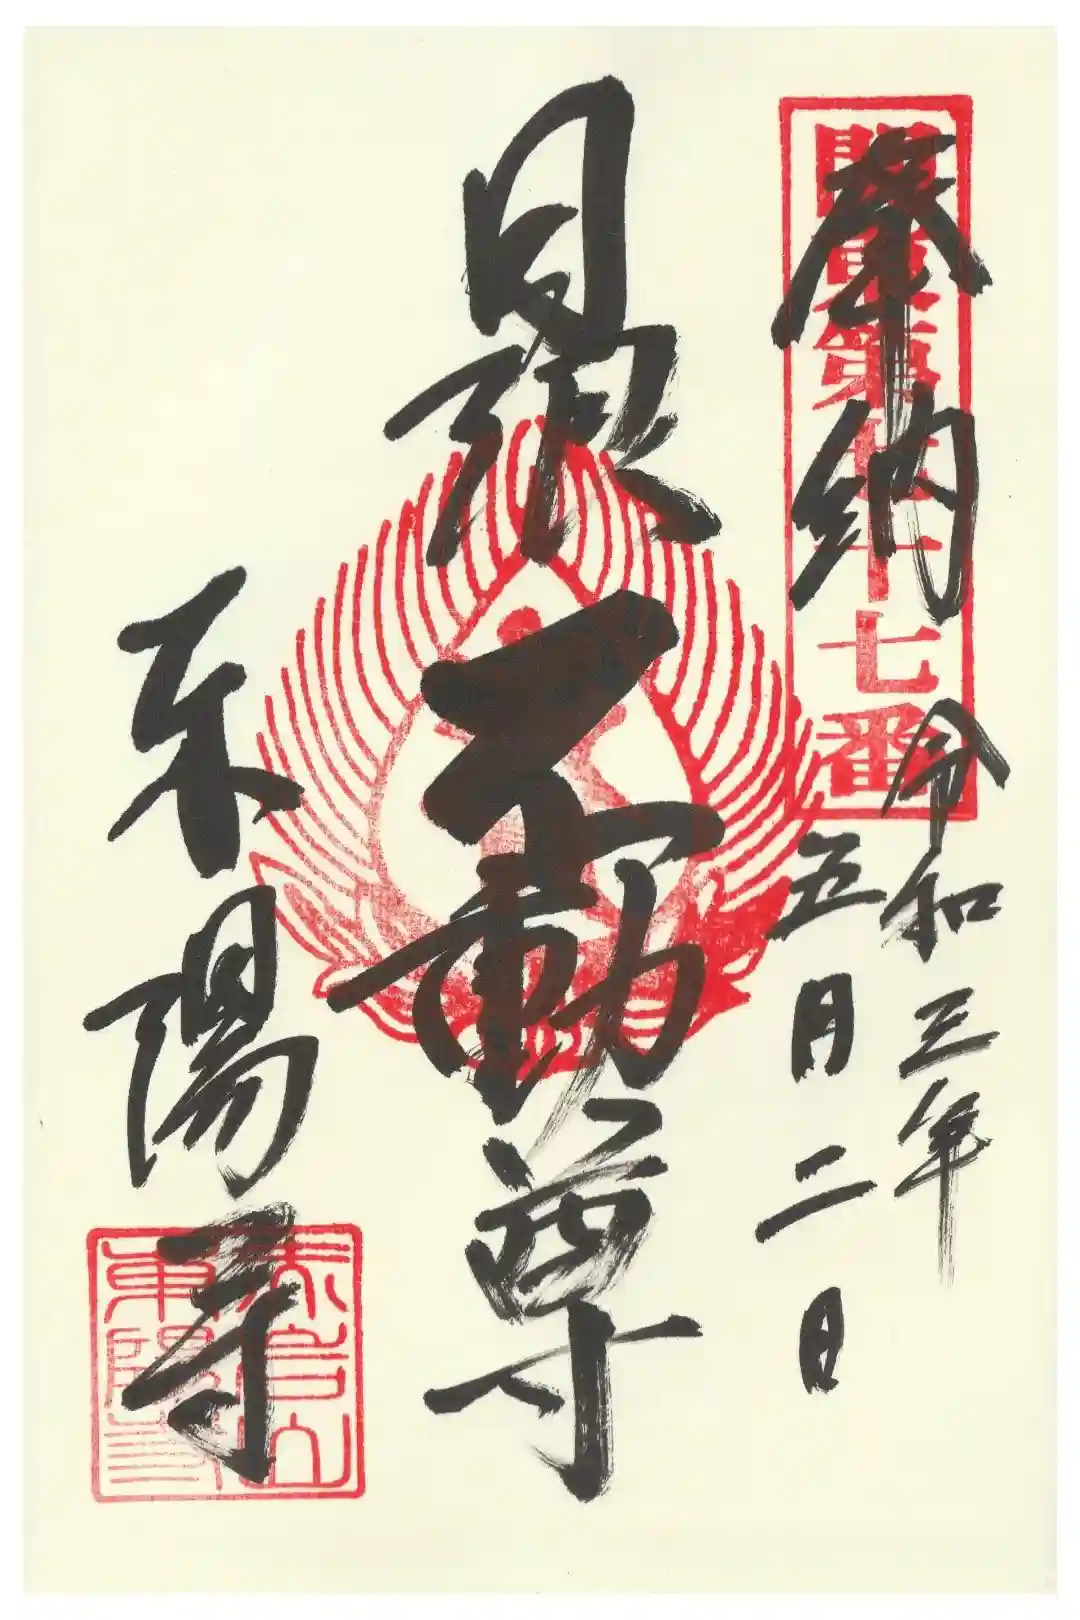 關東第七十七番
奉納
令和三年
五月二日
日限不動尊
東陽寺
東陽寺